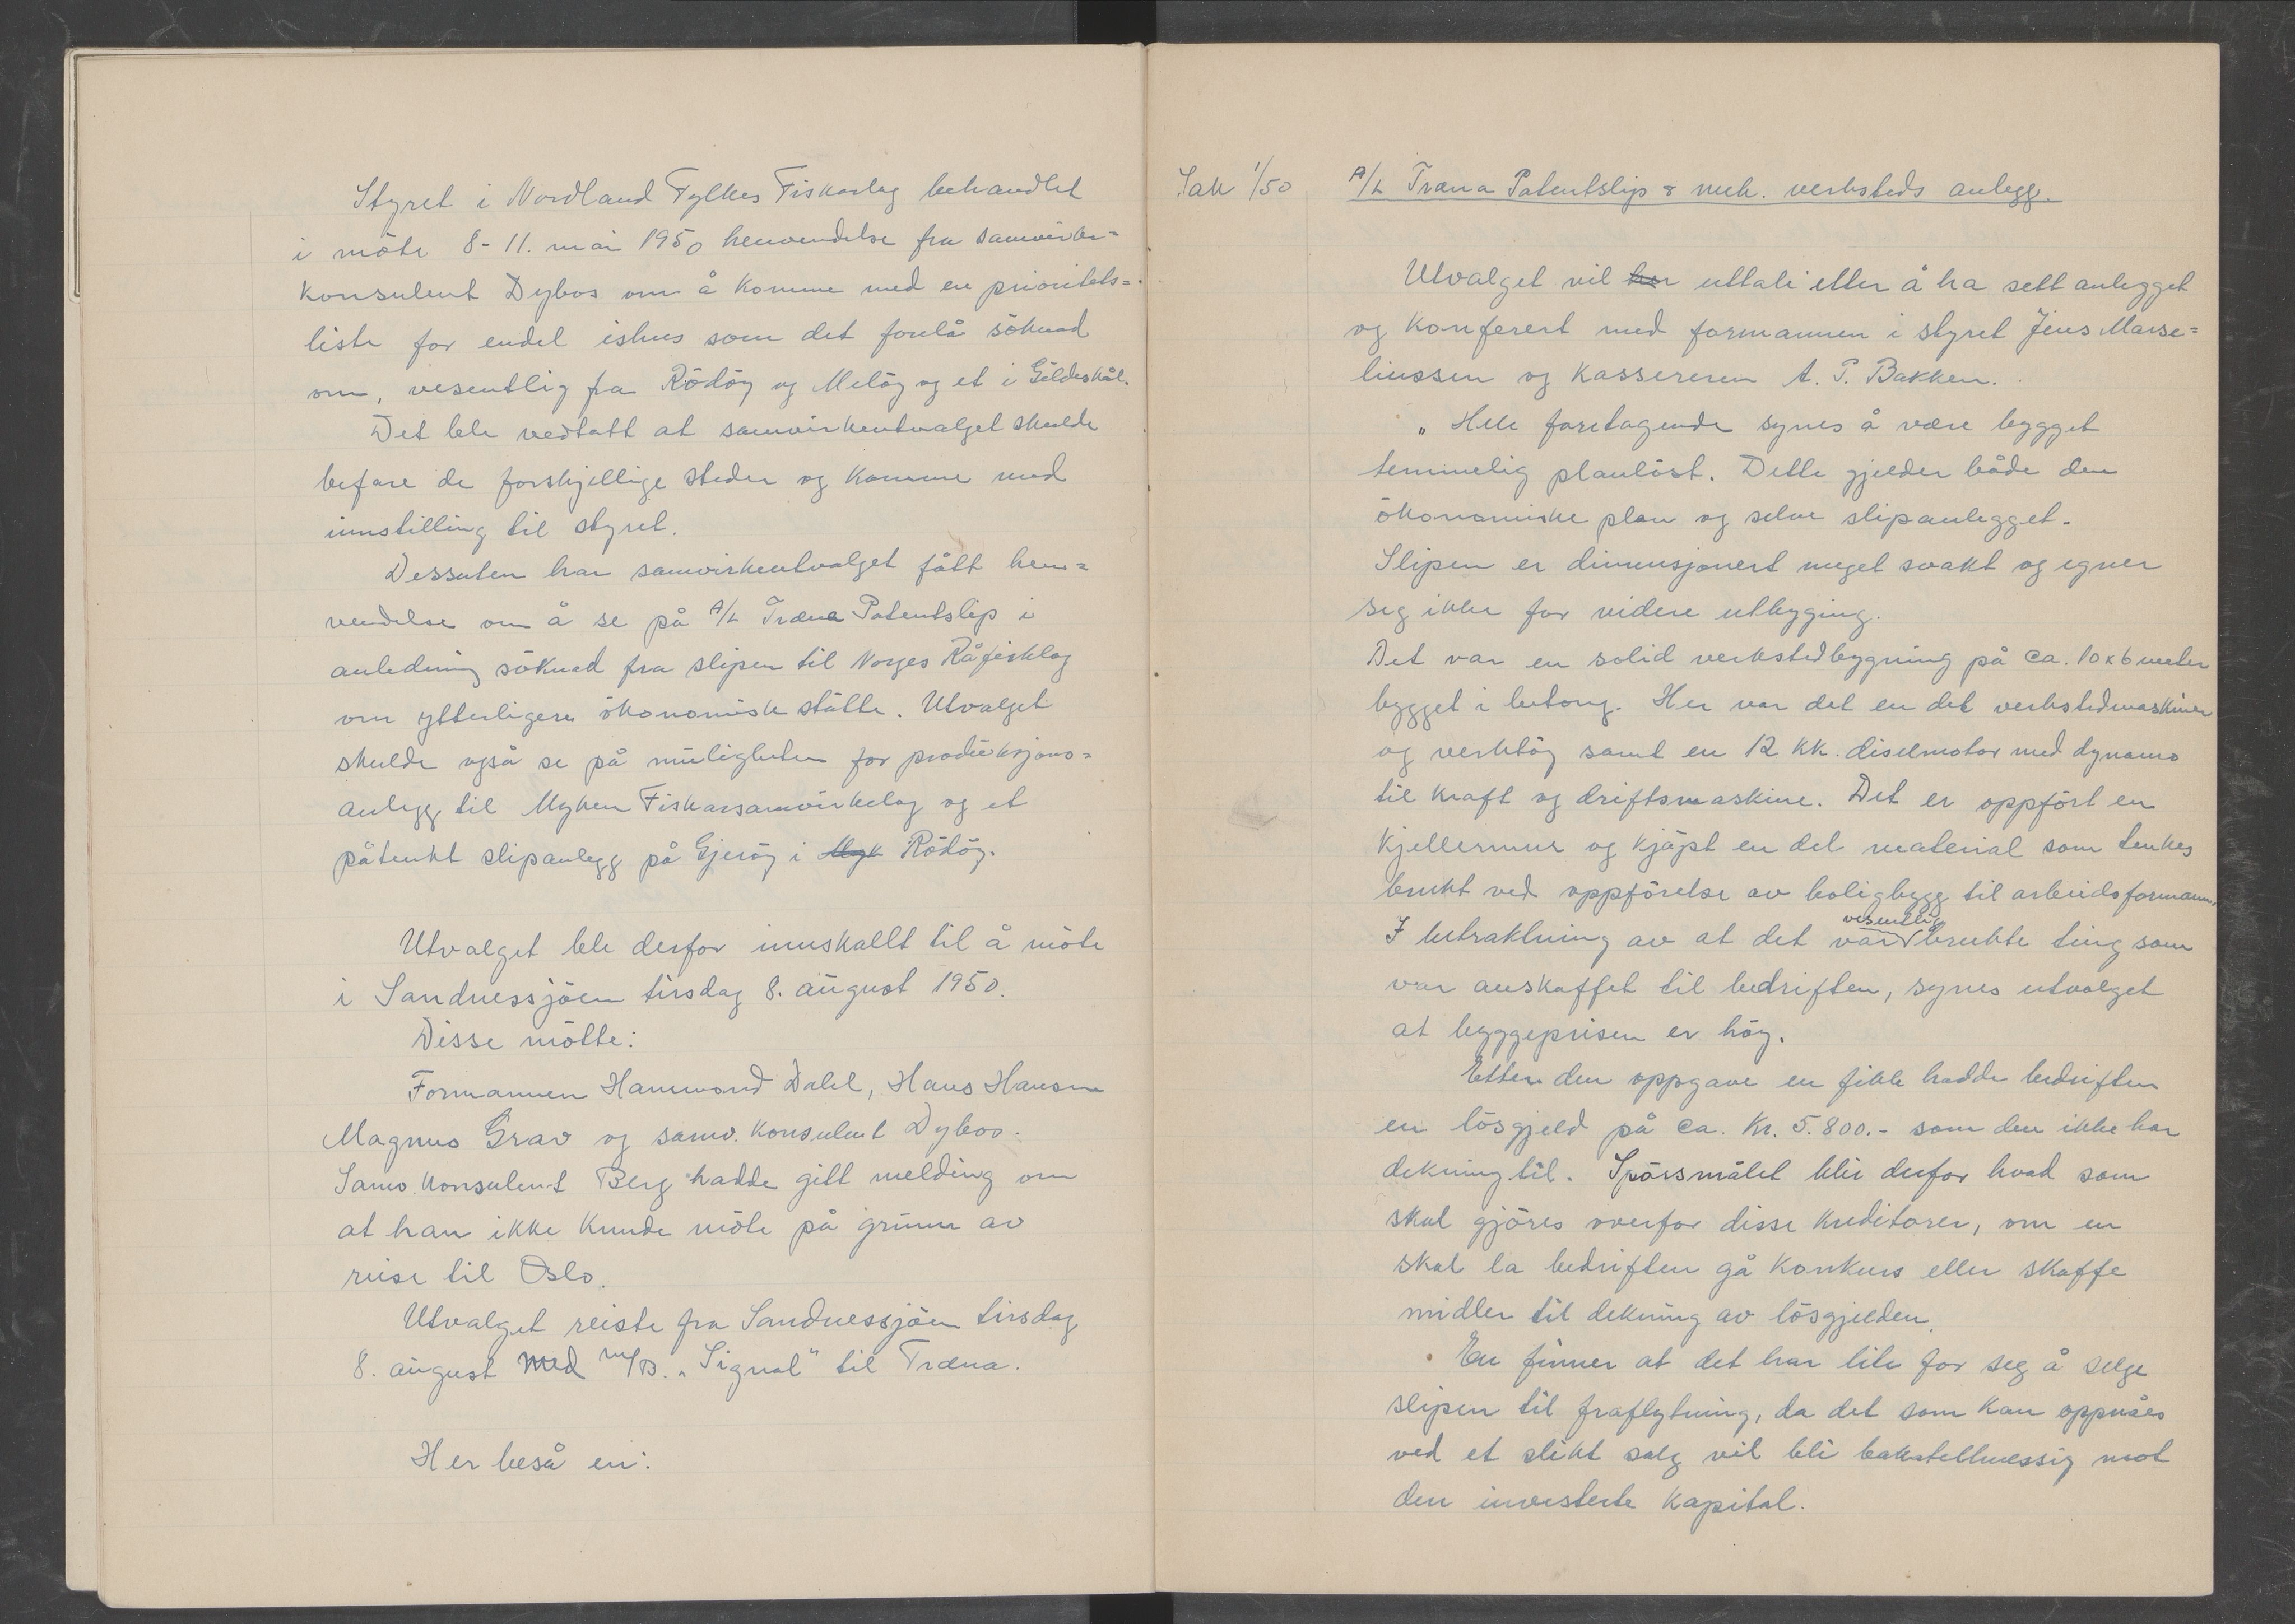 Styret i Nordland Fylkes Fiskarlag behandlet
i möte 8-11. mai 1950 henvendelse fra samvirke=
konsulent Dybos om å komme med en prioritets=
liste for endel ishus som det forelå söknad
om, vesentlig fra Rödöy og Melöy og et i Gildeskål.
Det ble vedtatt at samvirkeutvalget skulde
befare de forskjellige steder og komme med
innstilling til styret.
Dessuten har samvirkeutvalget fått hen=
vendelse om å se på A/L Træna Patentslip i
anledning söknad fra slipen til Norges Råfisklag
om ytterligere ökonomisk stötte. Utvalget
skulde også se på muligheten for produksjons=
anlegg til Myken Fiskarsamvirkelag og et
påtenkt slipanlegg på Gjeröy i Myk Rödöy.
Utvalget ble derfor innskallt til å möte
i Sandnessjöen tirsdag 8. august 1950.
Disse mötte:
Formannen Hammond Dahl, Hans Hansen
Magnus Grav og samv. konsulent Dybos.
Samv. konsulent Berg hadde gitt melding om
at han ikke kunde möte på grunn av
reise til Oslo.
Utvalget reiste fra Sandnessjöen tirsdag
8. august med M/B. „Signal" til Træna.
Her beså en:
Sak 1/50 A/L Træna Patentslip & mek. verksteds anlegg.
Utvalget vil her uttale etter å ha sett anlegget
og konferert med formannen i styret Jens Marse=
liussen og kassereren A. P. Bakken.
„ Hele foretagende synes å være bygget
temmelig planlöst. Dette gjelder både den
ökonomiske plan og selve slipanlegget.
Slipen er dimensjonert meget svakt og egner
seg ikke for videre utbygging.
Det var en solid verkstedbygning på ca. 10x6 meter
bygget i betong. Her var det en del verkstedmaskiner
og verktöy samt en 12 KK. diselmotor med dynamo
til kraft og driftsmaskine. Det er oppfört en
kjellermur og kjöpt en del material som tenkes
brukt ved oppförelse av boligbygg til arbeidsformann.
I betraktning av at det var vesentlig brukte ting som
var anskaffet til bedriften, synes utvalget
at byggeprisen er höy.
Etter den oppgave en fikk hadde bedriften
en lösgjeld på ca. Kr. 5.800.- som den ikke har
dekning til. Spörsmålet blir derfor hvad som
skal gjöres overfor disse kreditorer, om en
skal la bedriften gå konkurs eller skaffe
midler til dekning av lösgjelden.
En finner at det har lite for seg å selge
slipen til fraflytning, da det som kan oppnåes
ved et slikt salg vil bli bakatellmessig mot
den investerte kapital.